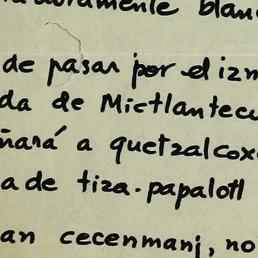 blan
de pasar por el izm
da de Mictlantecu
ñará a quetzalcox
a de tiza. papalotl
an cecenmanj, no